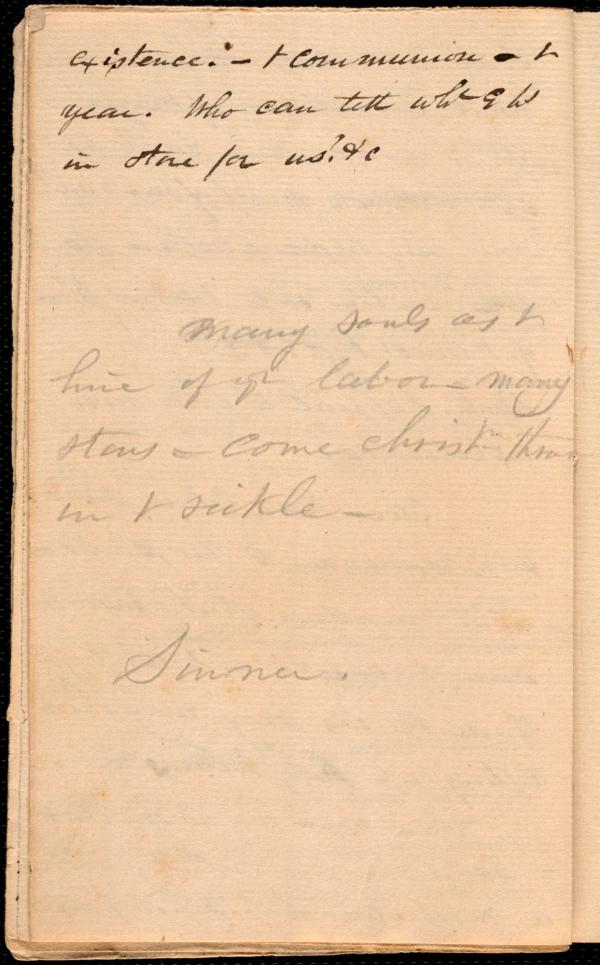 existence. - & communion - &
year. Who can tell wht G hs
in store for us? &c
many souls as &
hire of yr labor - many
stars - come christn thrus
in & sickle -
Sinner.